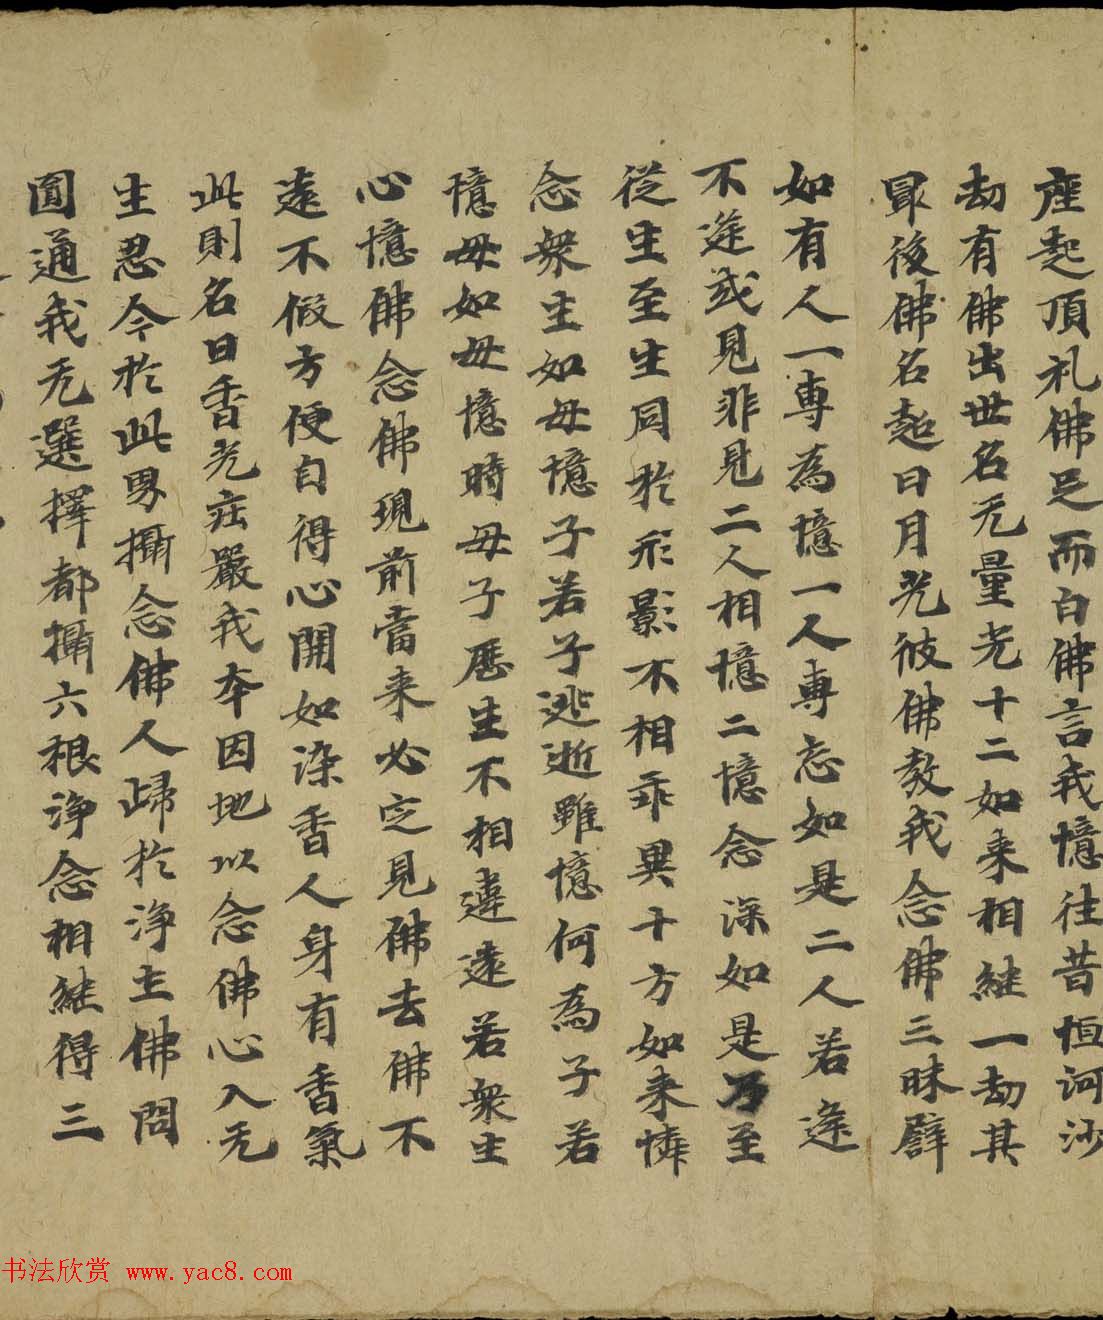 座起頂礼佛足而白佛言我憶往昔恒河沙
劫有佛出世名无量光十二如来相継一劫其
冣後佛名超日月光彼佛教我念佛三昧譬
如有人一專為憶一人專忘如是二人若逢
不逢或見非見二人相憶二憶念深如是乃至
従生至生同於形影不相乖異十方如来憐
念衆生如母憶子若子逃逝雖憶何為子若
憶母如母憶時母子歷生不相違遠若衆生
心憶佛念佛現前當来必定見佛去佛不
遠不假方便自得心開如染香人身有香氣
此則名曰香光莊嚴我本因地以念佛心入无
生忍今於此界攝念佛人歸於淨土佛問
圓通我无選擇都攝六根淨念相継得三
书法欣赏 www.yac8.com